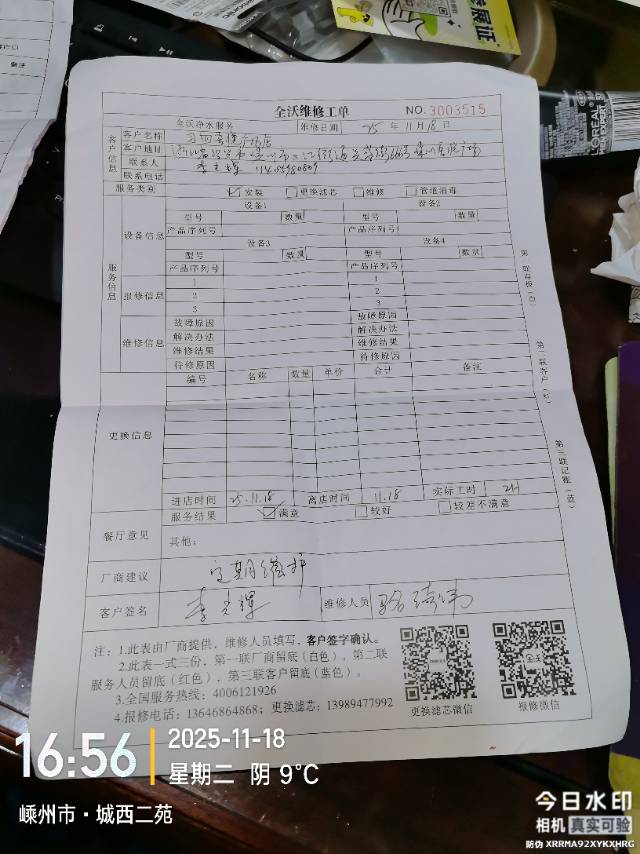 全沃维修工单
NO. 3003515
全沃净水服务 维修日期 25 年 11 月 18 日
客户信息
客户名称
客户地址
联系人
联系电话
服务类别 安装 更换滤芯 维修 管道消毒
服务信息
设备信息
设备1 设备2
型号 数量 型号 数量
产品序列号 产品序列号
设备3 设备4
型号 数量 型号 数量
产品序列号 产品序列号
报修信息
1 1
2 2
3 3
维修信息
故障原因 故障原因
解决办法 解决办法
维修结果 维修结果
待修原因 待修原因
更换信息
编号 名称 数量 单价 合计 备注
进店时间 25.11.18 离店时间 11.18 实际工时 2H
服务结果 满意 较好 较差不满意
餐厅意见 其他:
厂商建议 定期维护
客户签名 李光辉 维修人员
第二联客户(红)
第三联记账(蓝)
注: 1.此表由厂商提供, 维修人员填写, 客户签字确认。
2.此表一式三份, 第一联厂商留底(白色), 第二联
服务人员留底(红色), 第三联客户留底(蓝色)。
3.全国服务热线: 4006121926
4.报修电话: 13646864868; 更换滤芯: 13989477992
更换滤芯微信 报修微信
16:56
2025-11-18
星期二 阴 9°C
嵊州市·城西二苑
今日水印
相机 真实可验
防伪 XRRMA92XYKXHRG
L'ORÉAL